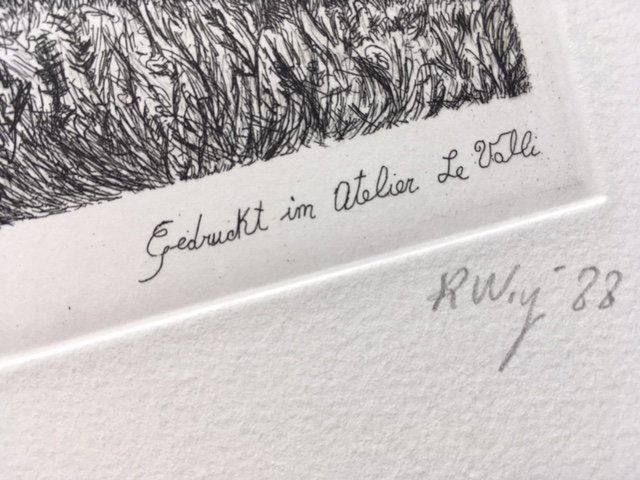 Gedruckt im Atelier Le Valli
'88